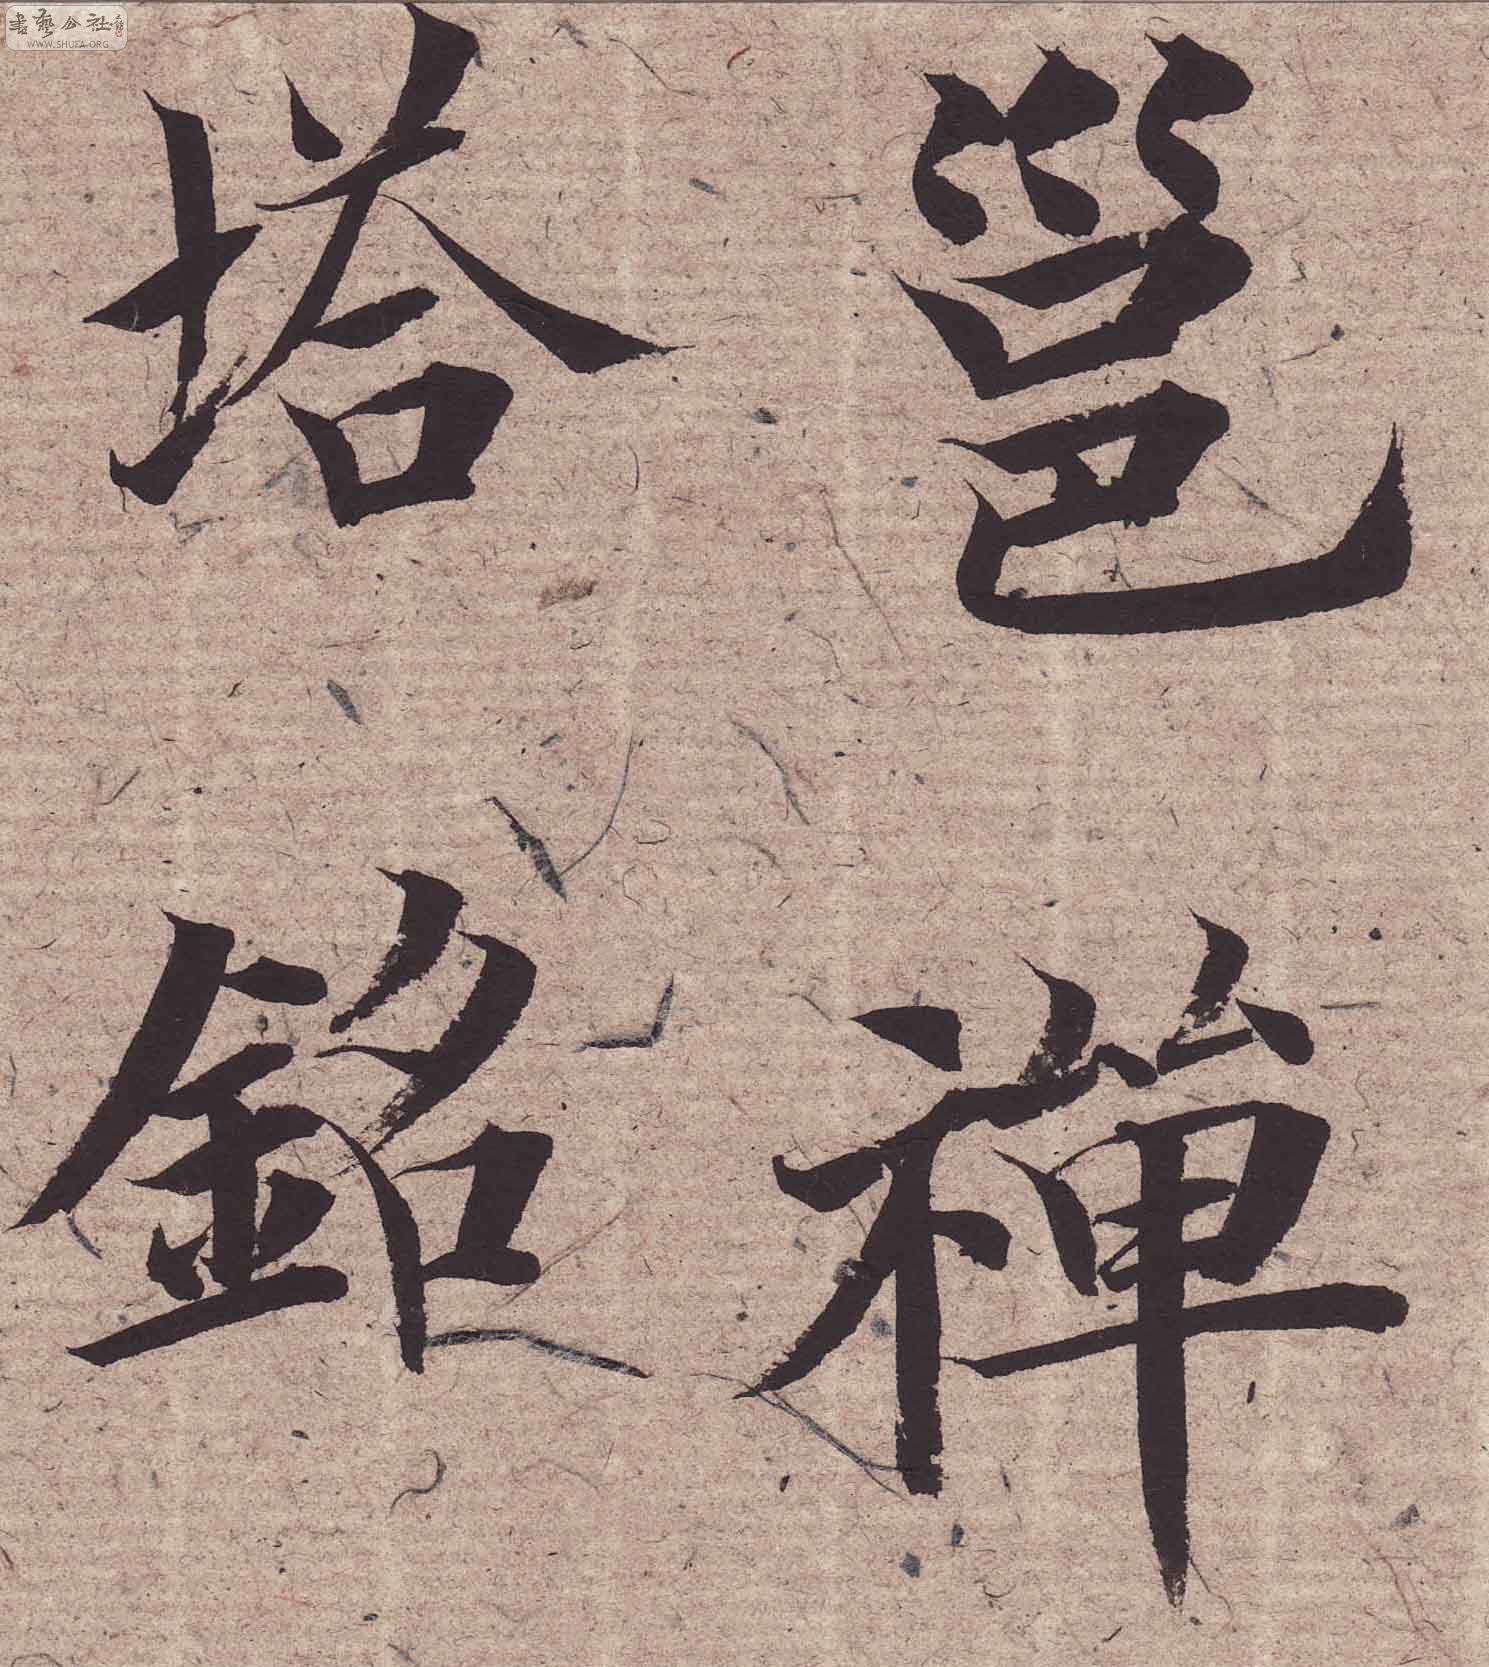 邕禅
塔銘
書藝公社
WWW.SHUFA.ORG